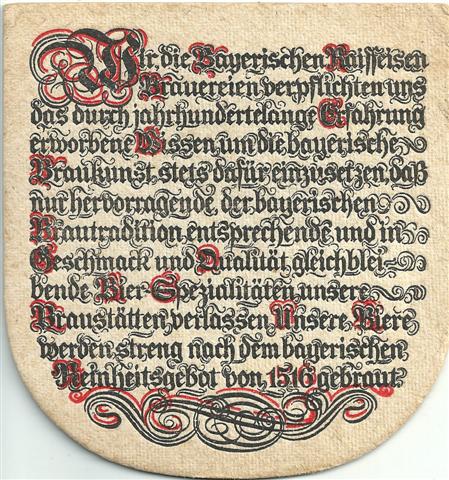 Wir, die Bayerischen Raiffeisen
Brauereien verpflichten uns
das durch jahrhundertelange Erfahrung
erworbene Wissen um die bayerische
Braukunst stets dafür einzusetzen, daß
nur hervorragende, der bayerischen
Brautradition entsprechende und in
Geschmack und Qualität gleichblei-
bende Bier-Spezialitäten unsere
Braustätten verlassen. Unsere Biere
werden streng nach dem bayerischen
Reinheitsgebot von 1516 gebraut.